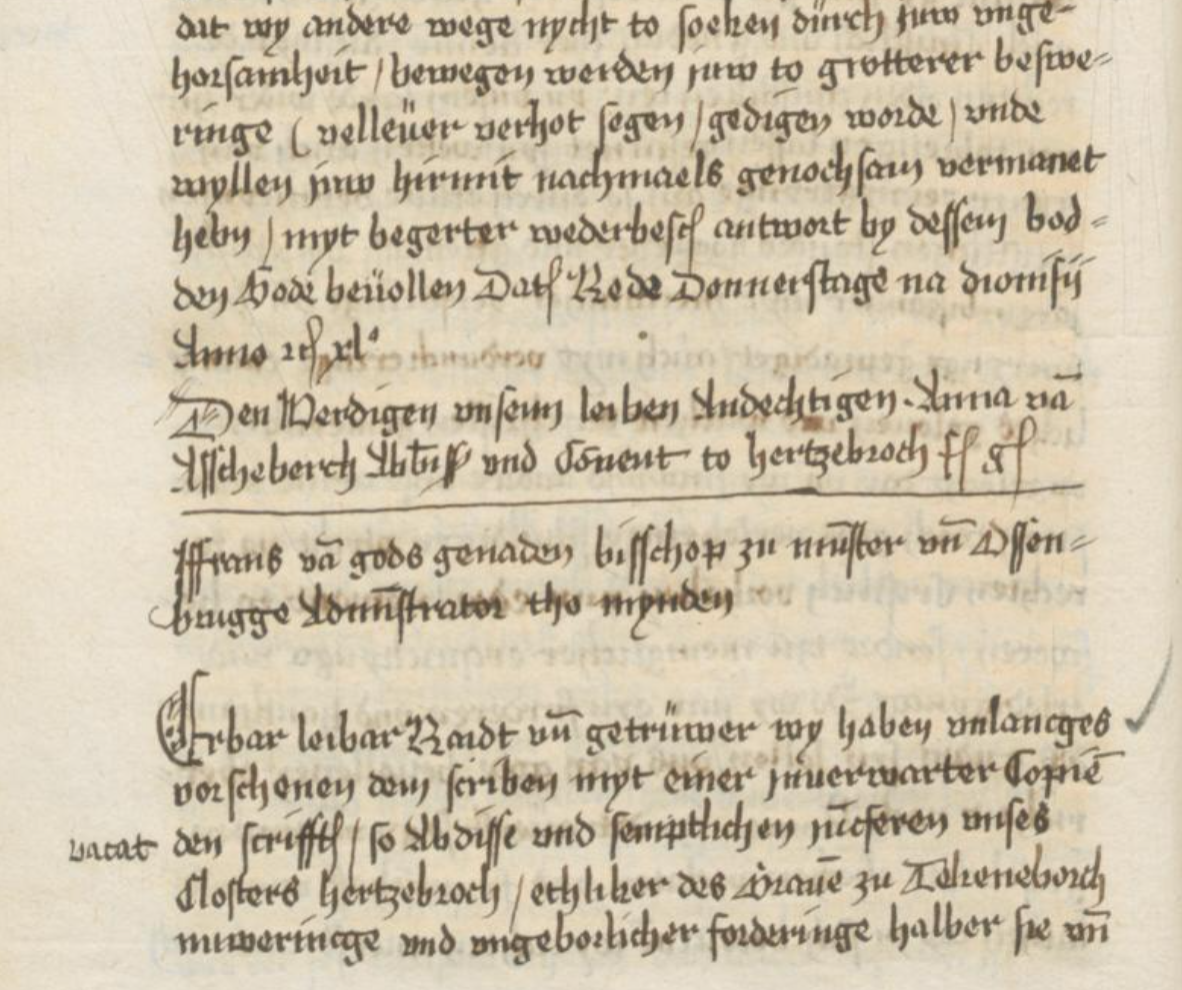 dat wy andere wege nycht to soeken dürch juw unge-
horsamheit / bewegen werden juw to grotterer beswe-
ringe ( velleüer verhot segen / gedigen worde / unde
wyllen juw hirmit nachmaels genochsam vermanet
hebn / myt begerter wederbesch antwort by dessem bod-
den Gode beüollen Dat Rede Donnerstage na dionisij
Anno xl°
Den Werdigen unsern leiben Andechtigen Anna vā
Asscheberch Abbiss und Cōvent to hertzebroch
Ffrans vā gods genaden bisschop zu mūster un̄ Ossen-
brugge Admīstrator tho mynden
Erbar leibar Raidt un̄ getrüwer wy haben unlancges
vorschenen dem scriben myt einer inverwarter Copiē
vacat den scrifft / so Abdisse und semptlichen jūcferen unses
Closters hertzebroch / ethliker des Grauē zu Tekeneborch
nuweringe und ungeborlicher forderinge halber sie un̄